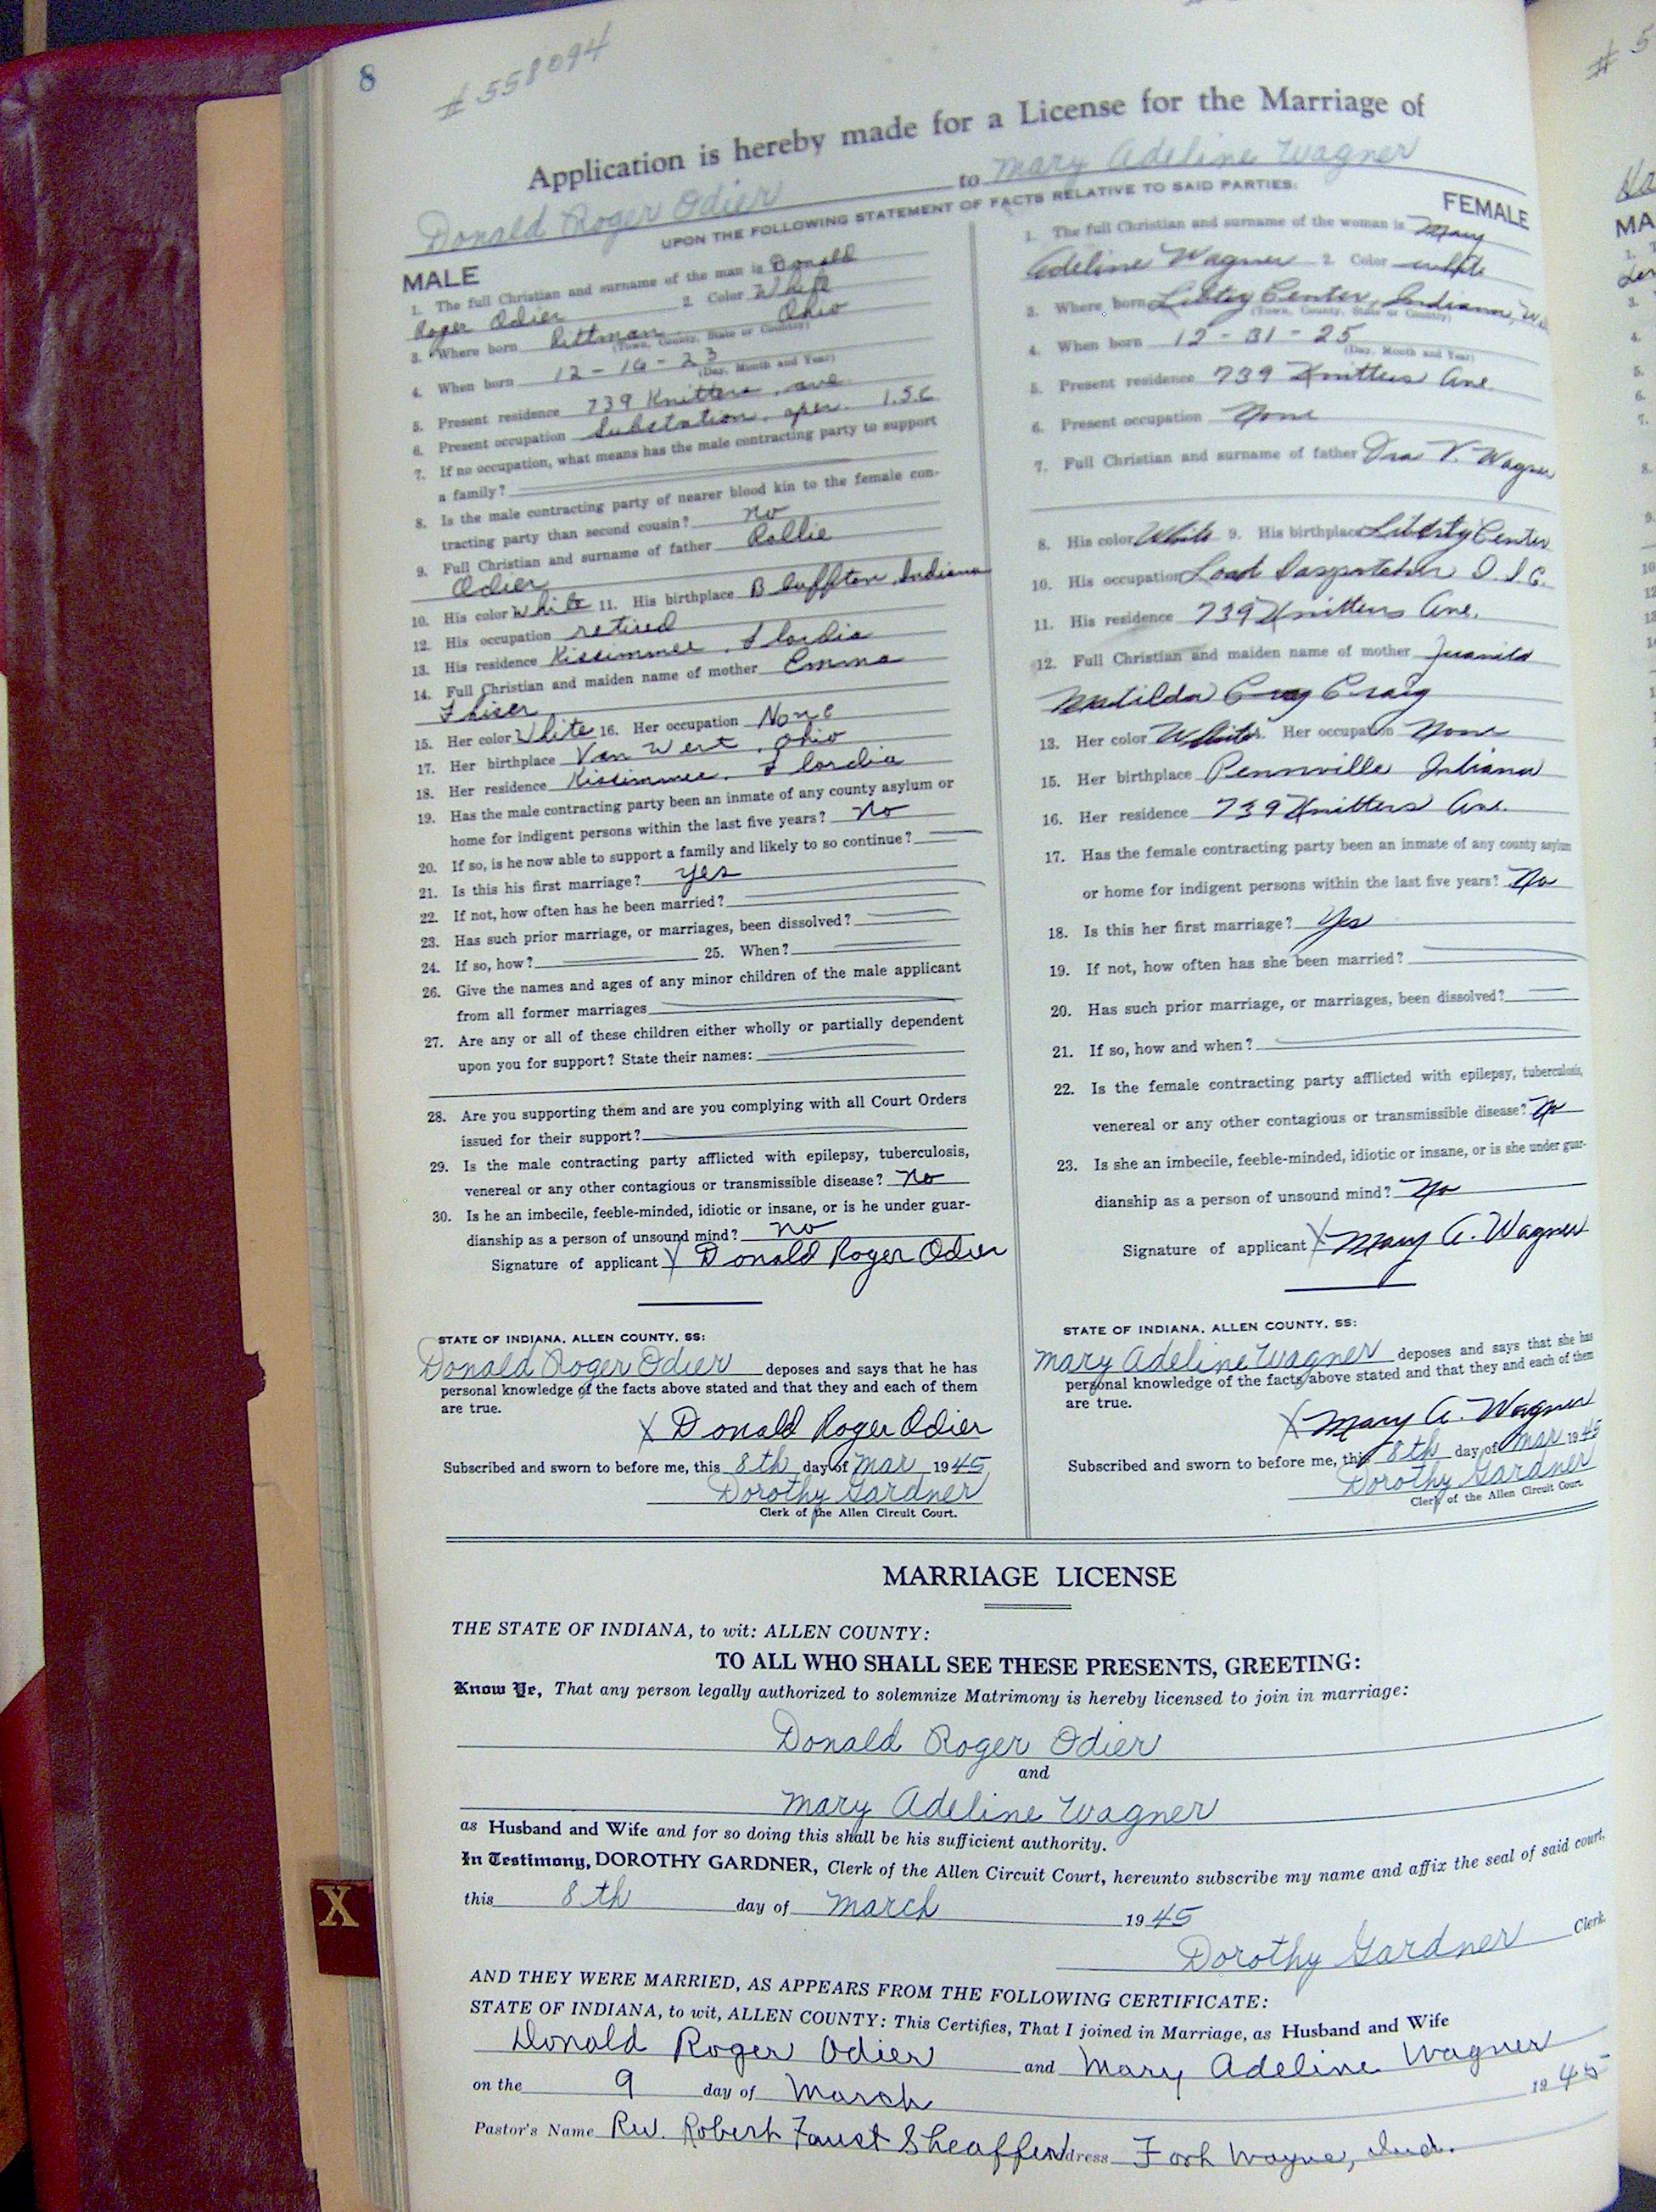 8
# 558094
Application is hereby made for a License for the Marriage of
Donald Roger Odier to Mary Adeline Wagner
UPON THE FOLLOWING STATEMENT OF FACTS RELATIVE TO SAID PARTIES:
MALE
1. The full Christian and surname of the man is Donald
Roger Odier 2. Color White
3. Where born Rittman Ohio
(Town, County, State or Country)
4. When born 12-16-23
(Day, Month and Year)
5. Present residence 739 Knitters ave
6. Present occupation Substation oper.
7. If no occupation, what means has the male contracting party to support
a family?
8. Is the male contracting party of nearer blood kin to the female con-
tracting party than second cousin? no
9. Full Christian and surname of father Rollie
Odier
10. His color White 11. His birthplace Bluffton Indiana
12. His occupation retired
13. His residence Kissimmee, Flordia
14. Full Christian and maiden name of mother Emma
15. Her color White 16. Her occupation None
17. Her birthplace Van Wert, Ohio
18. Her residence Kissimmee, Flordia
19. Has the male contracting party been an inmate of any county asylum or
home for indigent persons within the last five years? No
20. If so, is he now able to support a family and likely to so continue?
21. Is this his first marriage? yes
22. If not, how often has he been married?
23. Has such prior marriage, or marriages, been dissolved?
24. If so, how? 25. When?
26. Give the names and ages of any minor children of the male applicant
from all former marriages
27. Are any or all of these children either wholly or partially dependent
upon you for support? State their names:
28. Are you supporting them and are you complying with all Court Orders
issued for their support?
29. Is the male contracting party afflicted with epilepsy, tuberculosis,
venereal or any other contagious or transmissible disease? No
30. Is he an imbecile, feeble-minded, idiotic or insane, or is he under guar-
dianship as a person of unsound mind? no
Signature of applicant X Donald Roger Odier
STATE OF INDIANA, ALLEN COUNTY, SS:
Donald Roger Odier deposes and says that he has
personal knowledge of the facts above stated and that they and each of them
are true.
X Donald Roger Odier
Subscribed and sworn to before me, this 8th day of Mar 1945
Dorothy Gardner
Clerk of the Allen Circuit Court.
FEMALE
1. The full Christian and surname of the woman is Mary
Adeline Wagner 2. Color white
3. Where born Center, Indiana,
(Town, County, State or Country)
4. When born 12-31-25
(Day, Month and Year)
5. Present residence 739 Knitters Ave
6. Present occupation None
7. Full Christian and surname of father V. Wagner
8. His color White 9. His birthplace Liberty Center
10. His occupation Load
11. His residence 739 Knitters Ave.
12. Full Christian and maiden name of mother Juanita
Matilda Craig
13. Her color White Her occupation None
15. Her birthplace Pennville Indiana
16. Her residence 739 Knitters Ave.
17. Has the female contracting party been an inmate of any county asylum
or home for indigent persons within the last five years? No
18. Is this her first marriage? Yes
19. If not, how often has she been married?
20. Has such prior marriage, or marriages, been dissolved?
21. If so, how and when?
22. Is the female contracting party afflicted with epilepsy, tuberculosis,
venereal or any other contagious or transmissible disease? No
23. Is she an imbecile, feeble-minded, idiotic or insane, or is she under guar-
dianship as a person of unsound mind? No
Signature of applicant X Mary A. Wagner
STATE OF INDIANA, ALLEN COUNTY, SS:
Mary Adeline Wagner deposes and says that she has
personal knowledge of the facts above stated and that they and each of them
are true.
X Mary A. Wagner
Subscribed and sworn to before me, this 8th day of Mar 1945
Dorothy Gardner
Clerk of the Allen Circuit Court.
MARRIAGE LICENSE
THE STATE OF INDIANA, to wit: ALLEN COUNTY:
TO ALL WHO SHALL SEE THESE PRESENTS, GREETING:
Know Ye, That any person legally authorized to solemnize Matrimony is hereby licensed to join in marriage:
Donald Roger Odier
and
Mary Adeline Wagner
as Husband and Wife and for so doing this shall be his sufficient authority.
In Testimony, DOROTHY GARDNER, Clerk of the Allen Circuit Court, hereunto subscribe my name and affix the seal of said court,
this 8th day of March 1945
Dorothy Gardner Clerk.
AND THEY WERE MARRIED, AS APPEARS FROM THE FOLLOWING CERTIFICATE:
STATE OF INDIANA, to wit, ALLEN COUNTY: This Certifies, That I joined in Marriage, as Husband and Wife
Donald Roger Odier and Mary Adeline Wagner
on the 9 day of March 1945
Pastor's Name Rev. Robert Faust Sheaffer Address Fort Wayne, Ind.
X